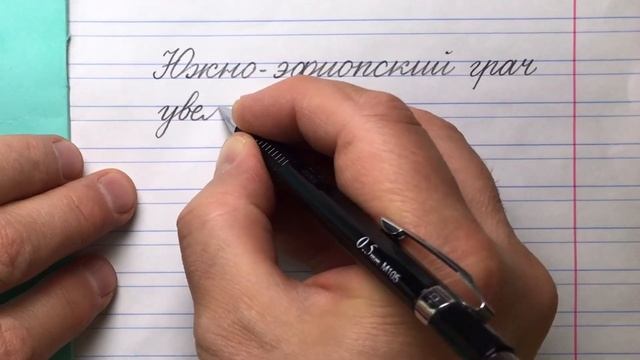 Южно-эфиопский грач
увел
0.5mm M105